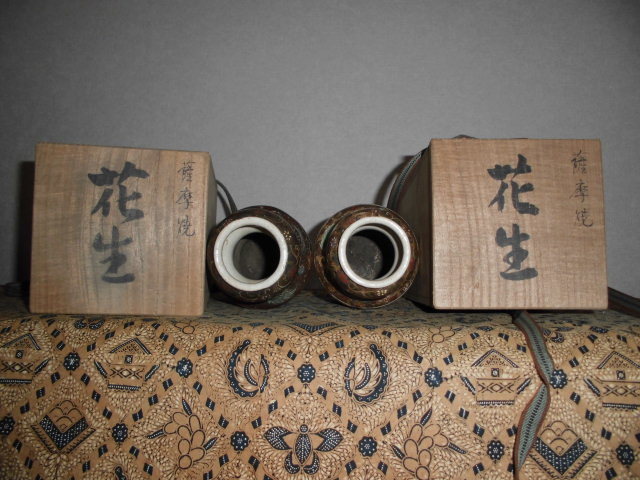 薩摩焼
花生
薩摩焼
花生